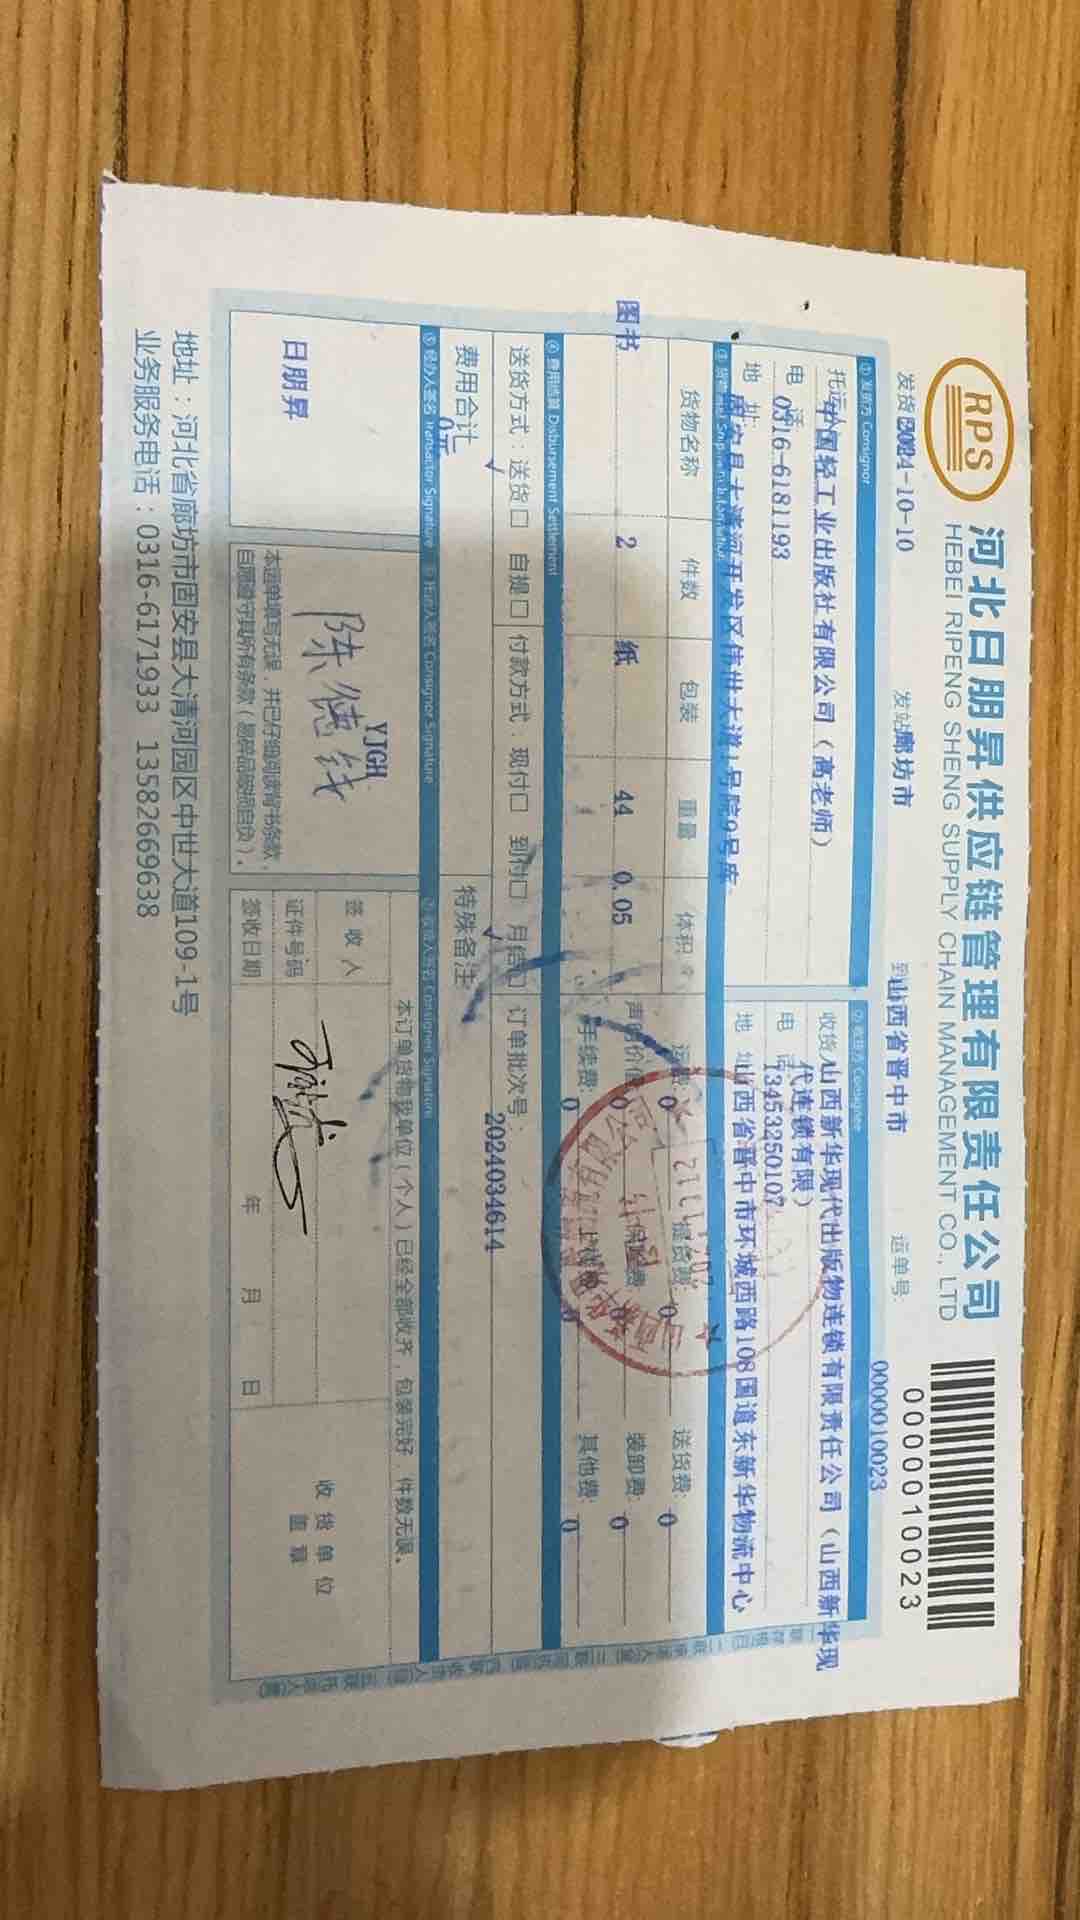 RPS
河北日朋昇供应链管理有限责任公司
HEBEI RIPENG SHENG SUPPLY CHAIN MANAGEMENT CO., LTD
0000010023
发货日期 2024-10-10 发站 廊坊市 到站 山西省晋中市 运单号: 0000010023
① 发货方 Consignor
托运人 中国轻工业出版社有限公司（高老师）
电 话 0316-6181193
地 址: 固安县大清河开发区伟世大道1号院9号库
② 收货方 Consignee
收货人 山西新华现代出版物连锁有限责任公司（山西新华现
代连锁有限）
电 话 13453250107
地 址 山西省晋中市环城西路108国道东新华物流中心
货物名称 件数 包装 重量 体积
图书 2 纸 44 0.05
运费: 0 提货费: 0 送货费: 0
声明价值 0 保险费: 0 装卸费: 0
手续费: 0 0 其他费: 0
④ 费用结算 Disbursement Settlement
送货方式: 送货☐ 自提☐ 付款方式: 现付☐ 到付☐ 月结☐ 订单批次号:
2024034614
费用合计 0元 特殊备注
⑤ 经办人签名 Transactor Signature
⑥ 托运人签名 Consignor Signature
⑦ 收货人签名 Consignee Signature
日朋昇
YJGH
本运单填写无误，并已仔细阅读背书条款，
自愿遵守其所有条款（易碎品破损自负）。
本订单货物我单位（个人）已经全部收齐，包装完好，件数无误。
签 收 人
证件号码
签收日期 年 月 日
收 货 单 位
盖 章
地址：河北省廊坊市固安县大清河园区中世大道109-1号
业务服务电话：0316-6171933 13582669638